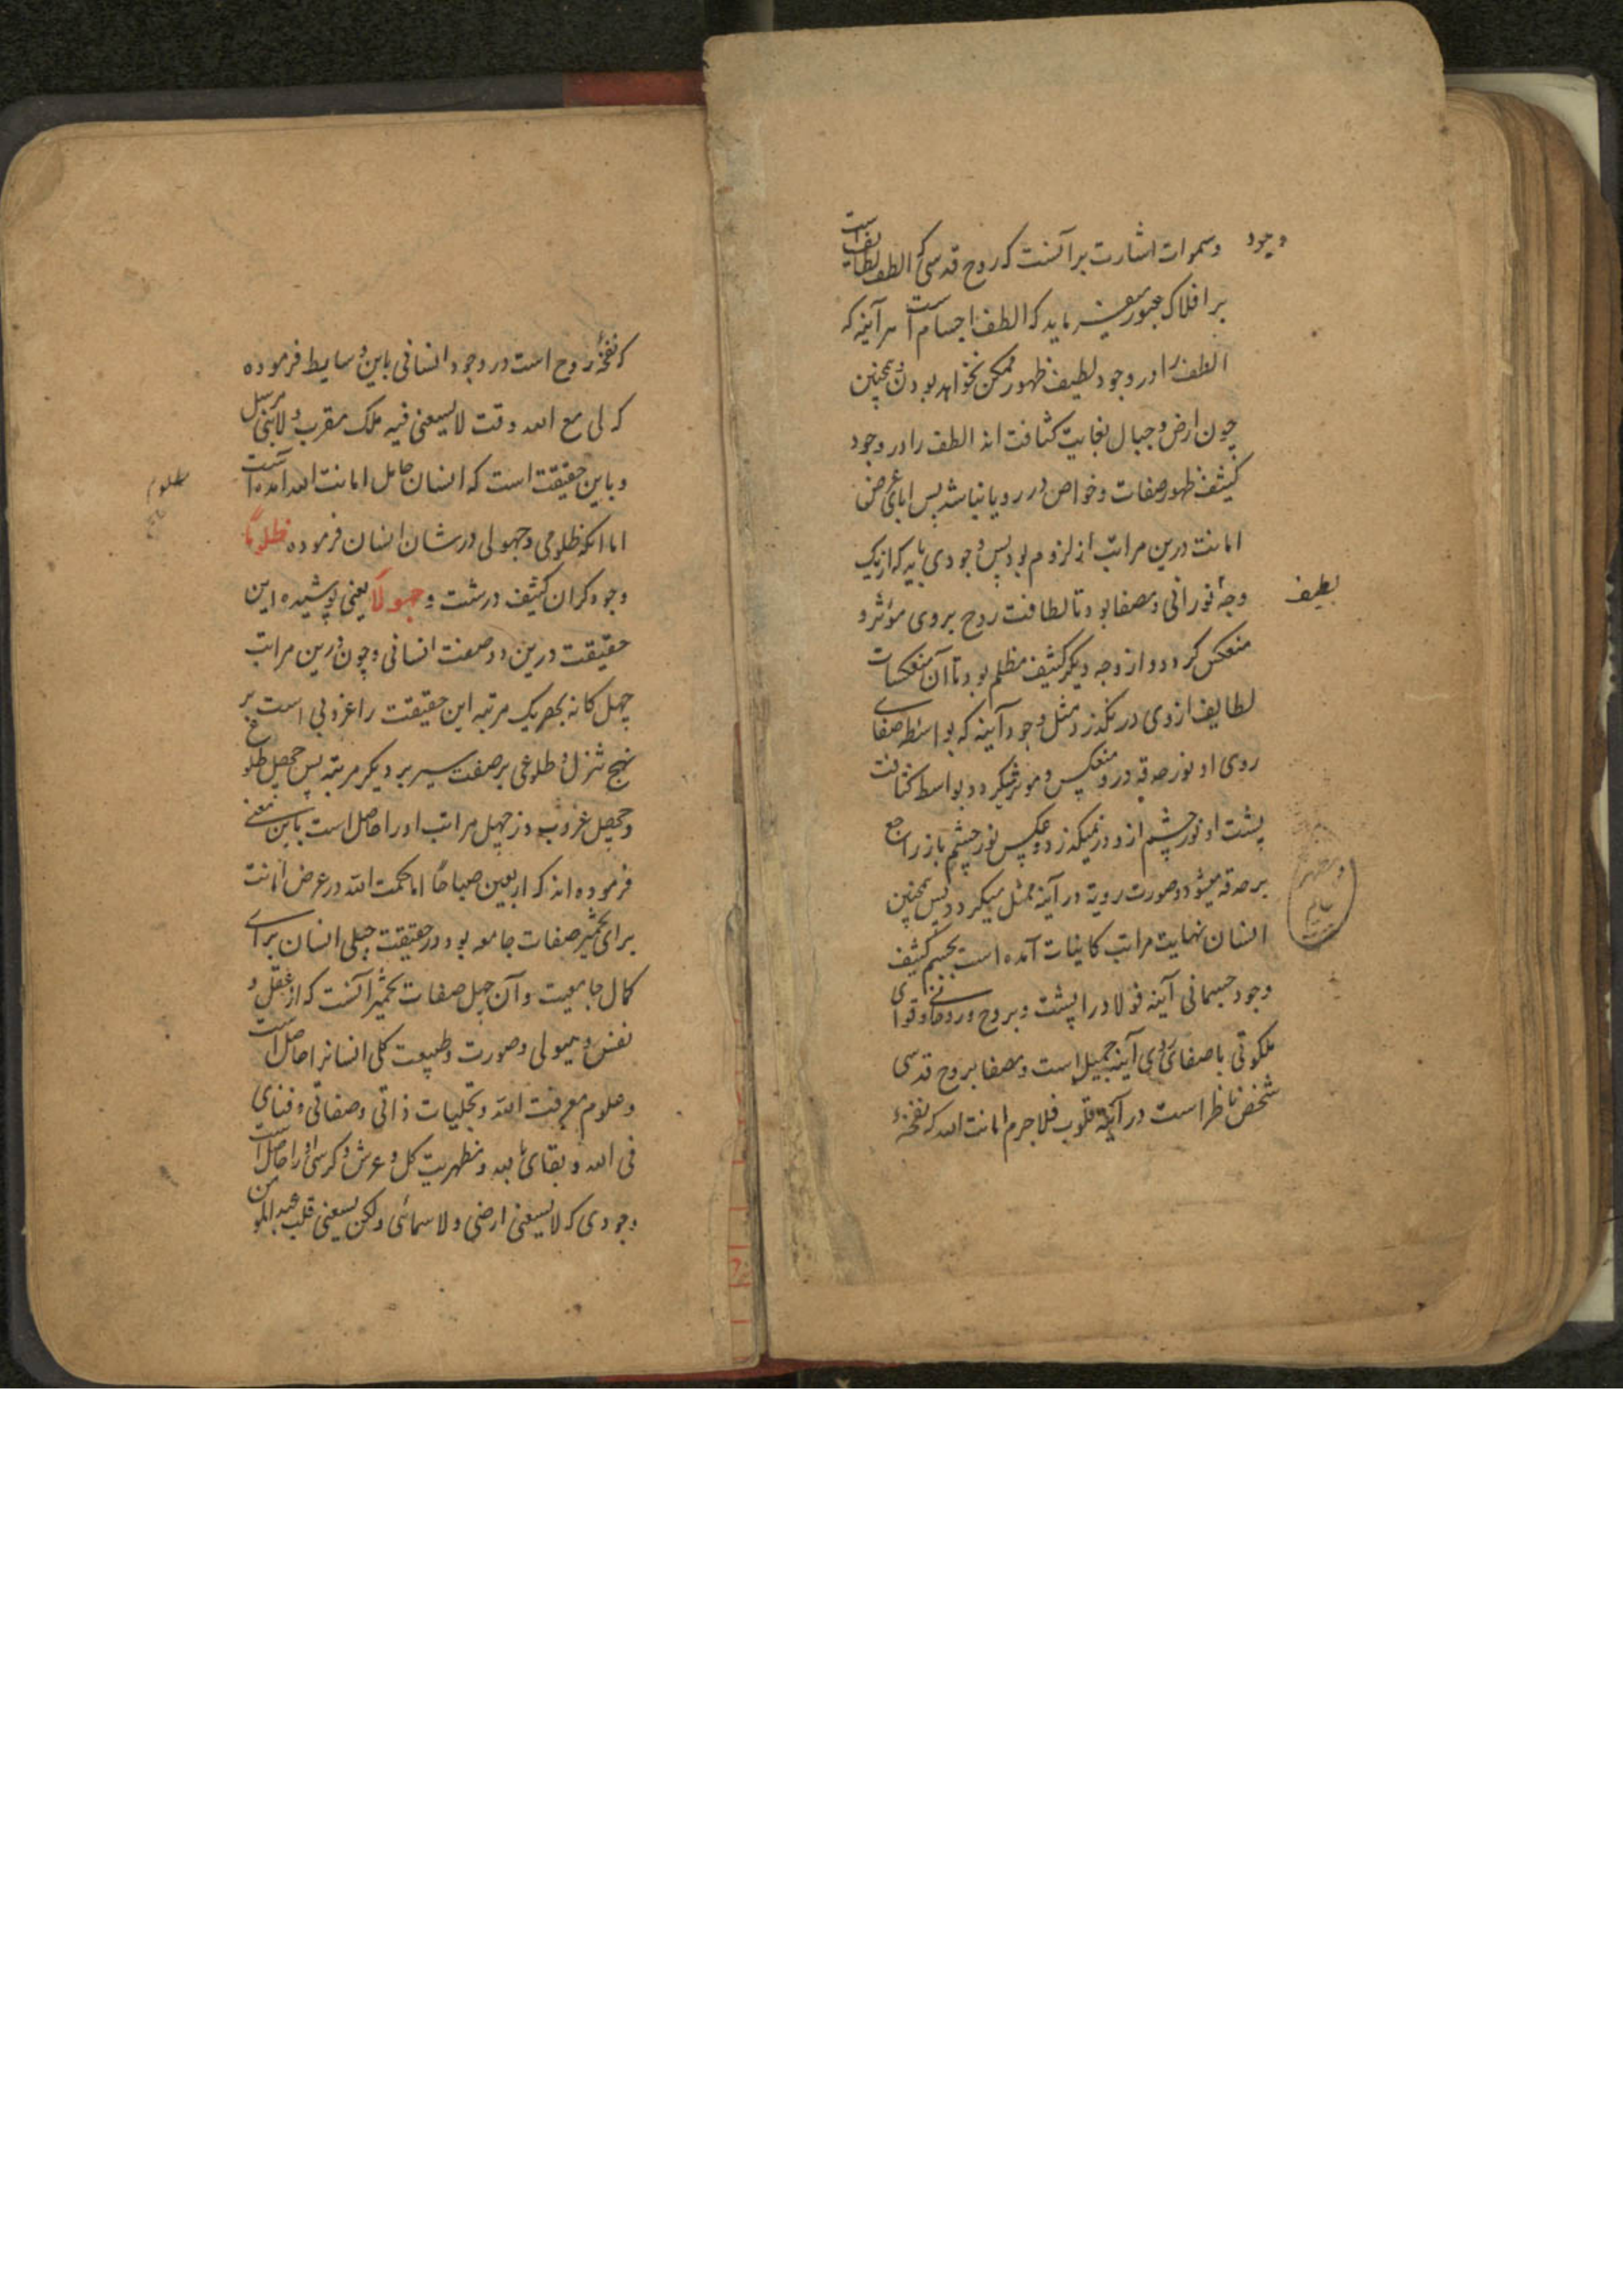 وسموات اشارت برآنست که روح قدسی که الطف لطایف است
بر افلاک عبور میفرماید که الطف اجسام است هرآینه که
الطف را در وجود لطیف ظهور ممکن نخواهد بودن و همچنین
چون ارض و جبال بغایت کثافت اند الطف را در وجود
کثیف ظهور صفات و خواص در رو پایا نباشد پس ابای عرض
امانت درین مراتب از لزوم بود پس وجودی باید که از یک
وجه نورانی و مصفا بود تا لطافت روح بروی مؤثر و
منعکس کردد و از وجه دیکر کثیف مظلم بود تا آن منعکسات
لطایف از وی در نکذرد مثل وجود آینه که بواسطه صفای
روی او نور حدقه درو منعکس و موثر میکردد و بواسطه کثافت
پشت او نور چشم ازو در نمیکذرد و عکس نور چشم باز راجع
بر حدقه میشود و صورت رویة در آینه ممثل میکردد پس همچنین
انسان نهایت مراتب کاینات آمده است بجسم کثیف
وجود جسمانی آینه فولاد را پشت و بروح و روحانی و قوای
ملکوتی با صفای روی آینه جمیل است و مصفا بروح قدسی
شخص ناظر است در آینه قلوب فلاجرم امانت الله که نفخهٔ
وجود
لطیف
که نفخهٔ روح است در وجود انسانی باین وسایط فرموده
که لی مع الله وقت لا یسعنی فیه ملک مقرب ولا نبی مرسل
و باین حقیقت است که انسان حامل امانت الله آمده است
اما انکه ظلومی و جهولی در شان انسان فرموده ظلوماً
وجود کران کثیف درشت و جهولاً یعنی پوشیده این
حقیقت درین دو صفت انسانی و چون درین مراتب
چهل کانه بهر یک مرتبه این حقیقت را غروبی است بر
نهج تنزل و طلوعی بر صفت سیر بر دیکر مرتبه پس چهل طلوع
و چهل غروب در چهل مراتب او را حاصل است باین معنی
فرموده اند که اربعین صباحاً اما حکمت الله در عرض امانت
برای تخمیر صفات جامعه بود در حقیقت جبلی انسان برای
کمال جامعیت و آن چهل صفات تخمیر آنست که از عقل و
نفس و هیولی و صورت و طبیعت کلی انسانرا حاصل است
و علوم معرفت الله و تجلیات ذاتی و صفاتی و فنای
فی الله و بقای بالله و مظهریت کل و عرش و کرسی او را حاصل است
وجودی که لا یسعنی ارضی ولا سمائی ولکن یسعنی قلب عبد المومن